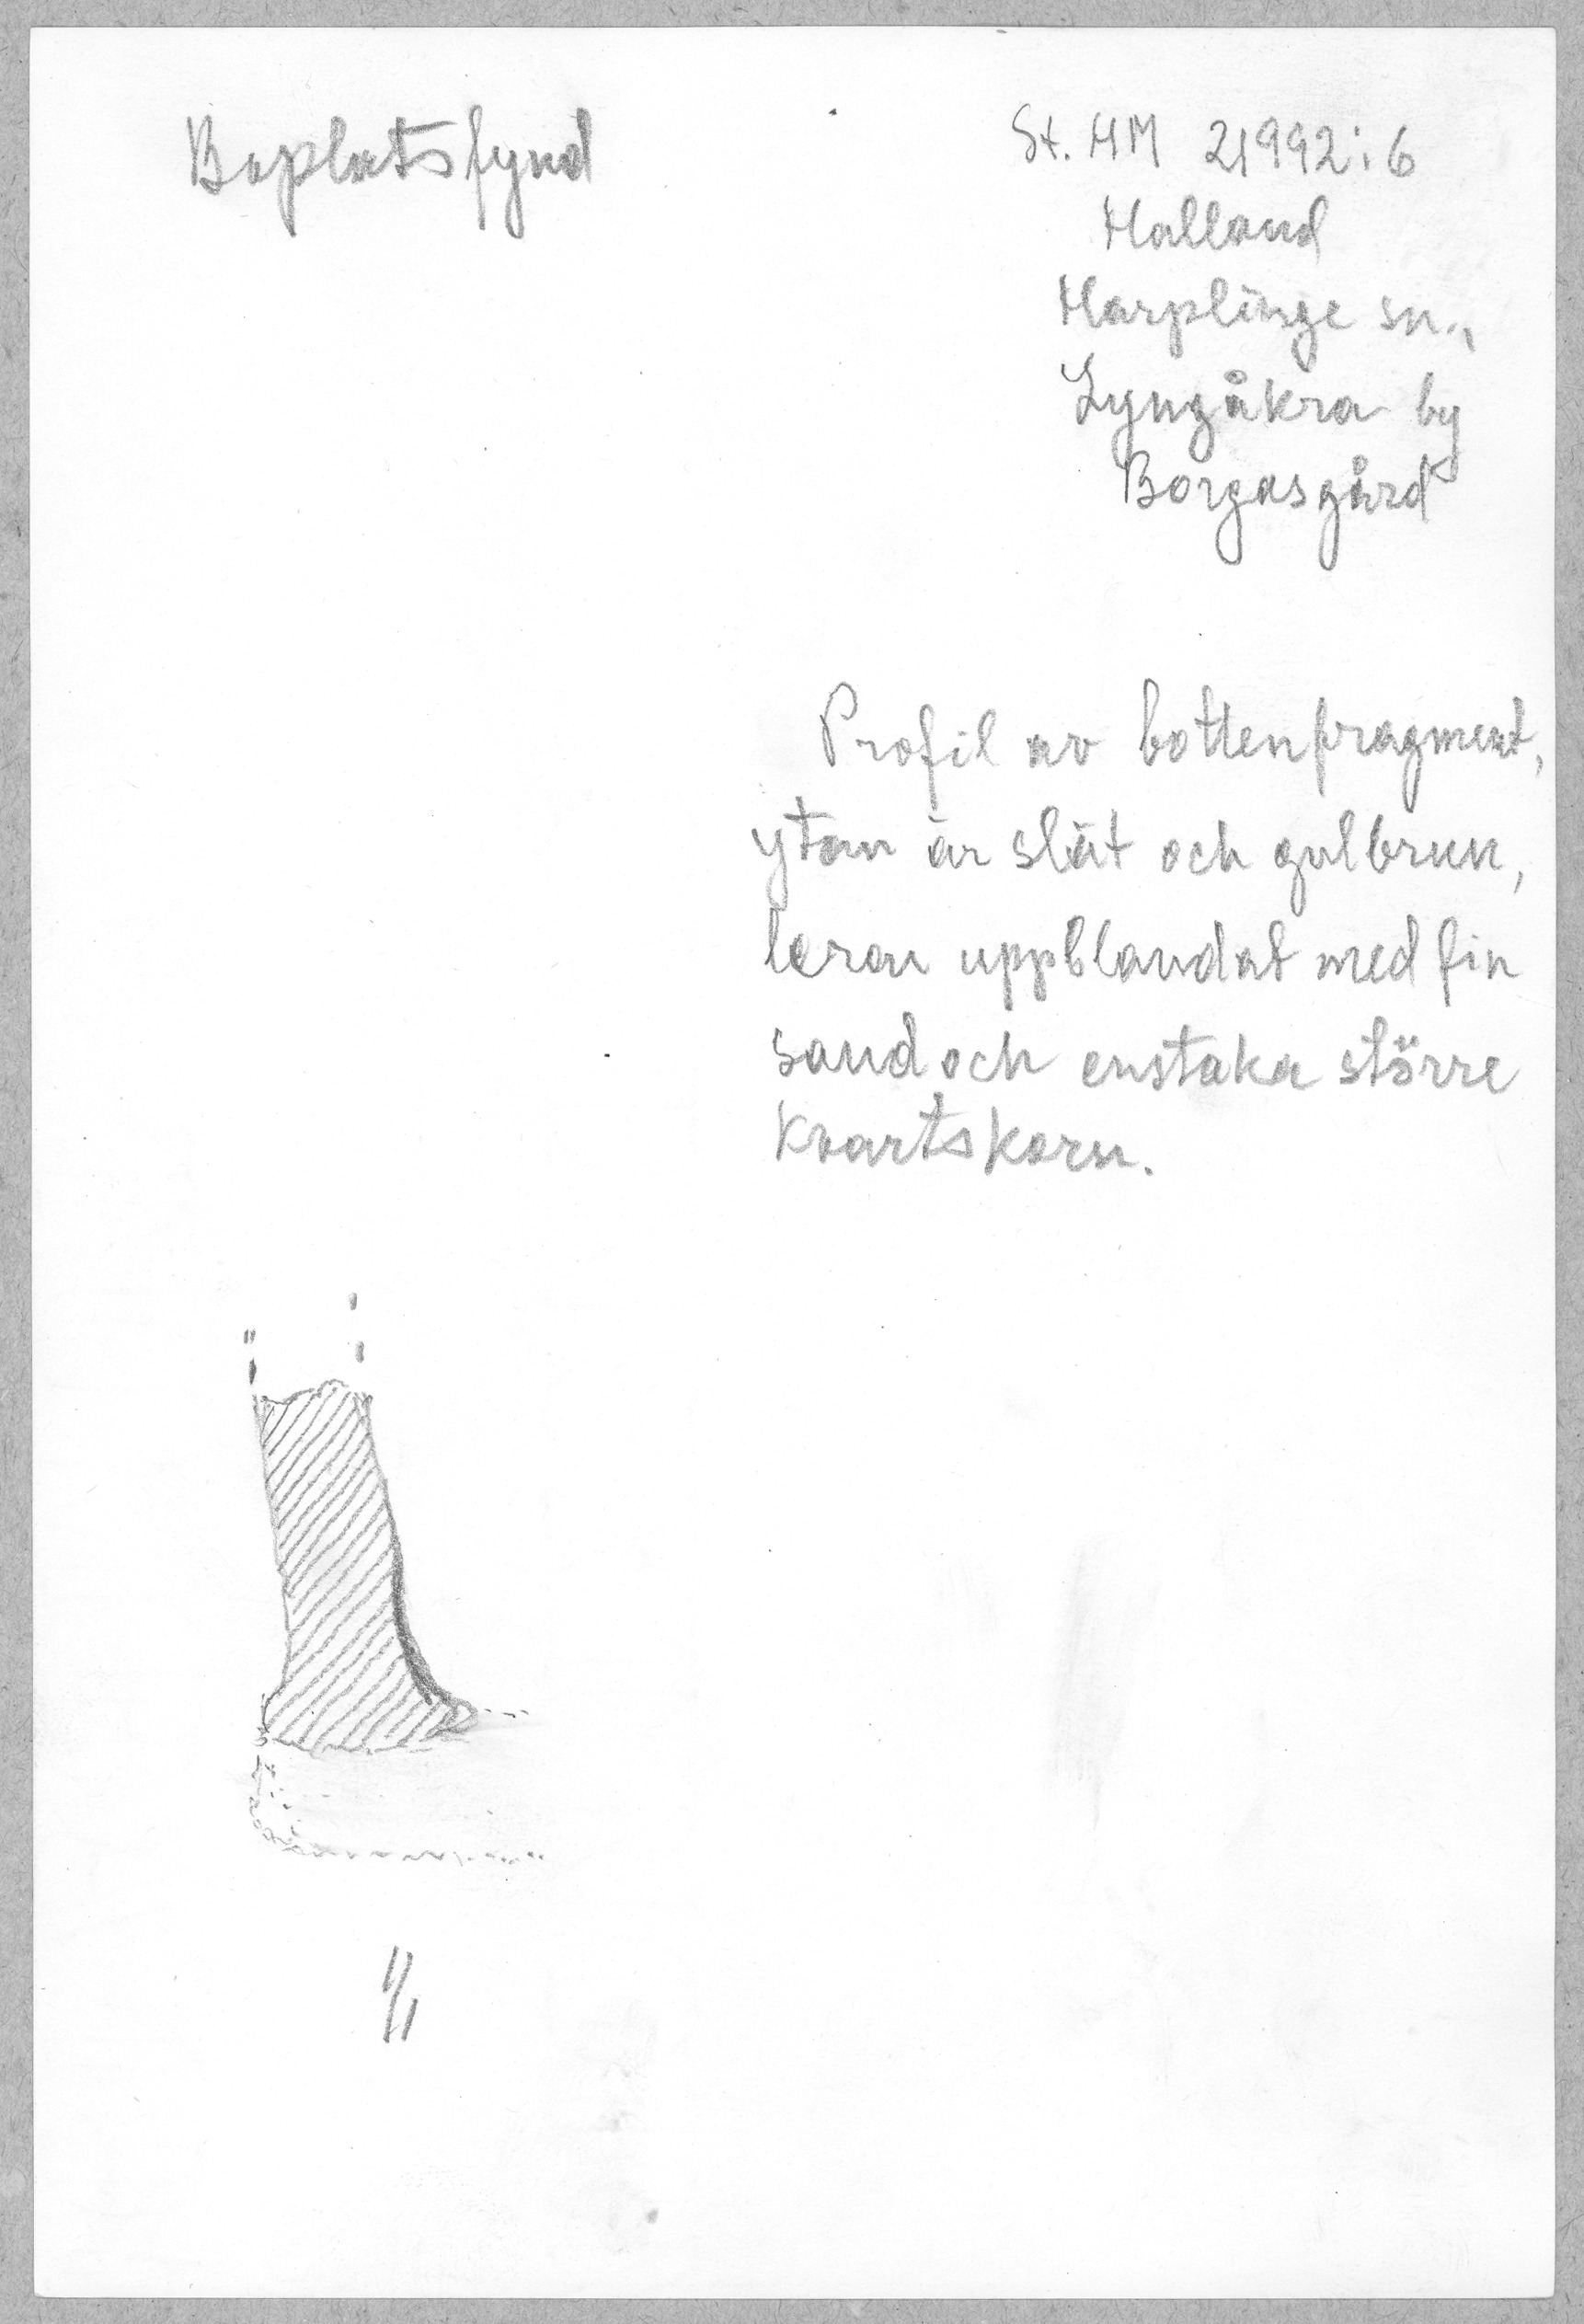 Boplatsfynd
St. HM 21992:6
Halland
Harplinge sn.,
Lyngåkra by
Borgasgård
Profil av bottenfragment,
ytan är slät och gulbrun,
leran uppblandat med fin
sand och enstaka större
kvartskorn.
1/1